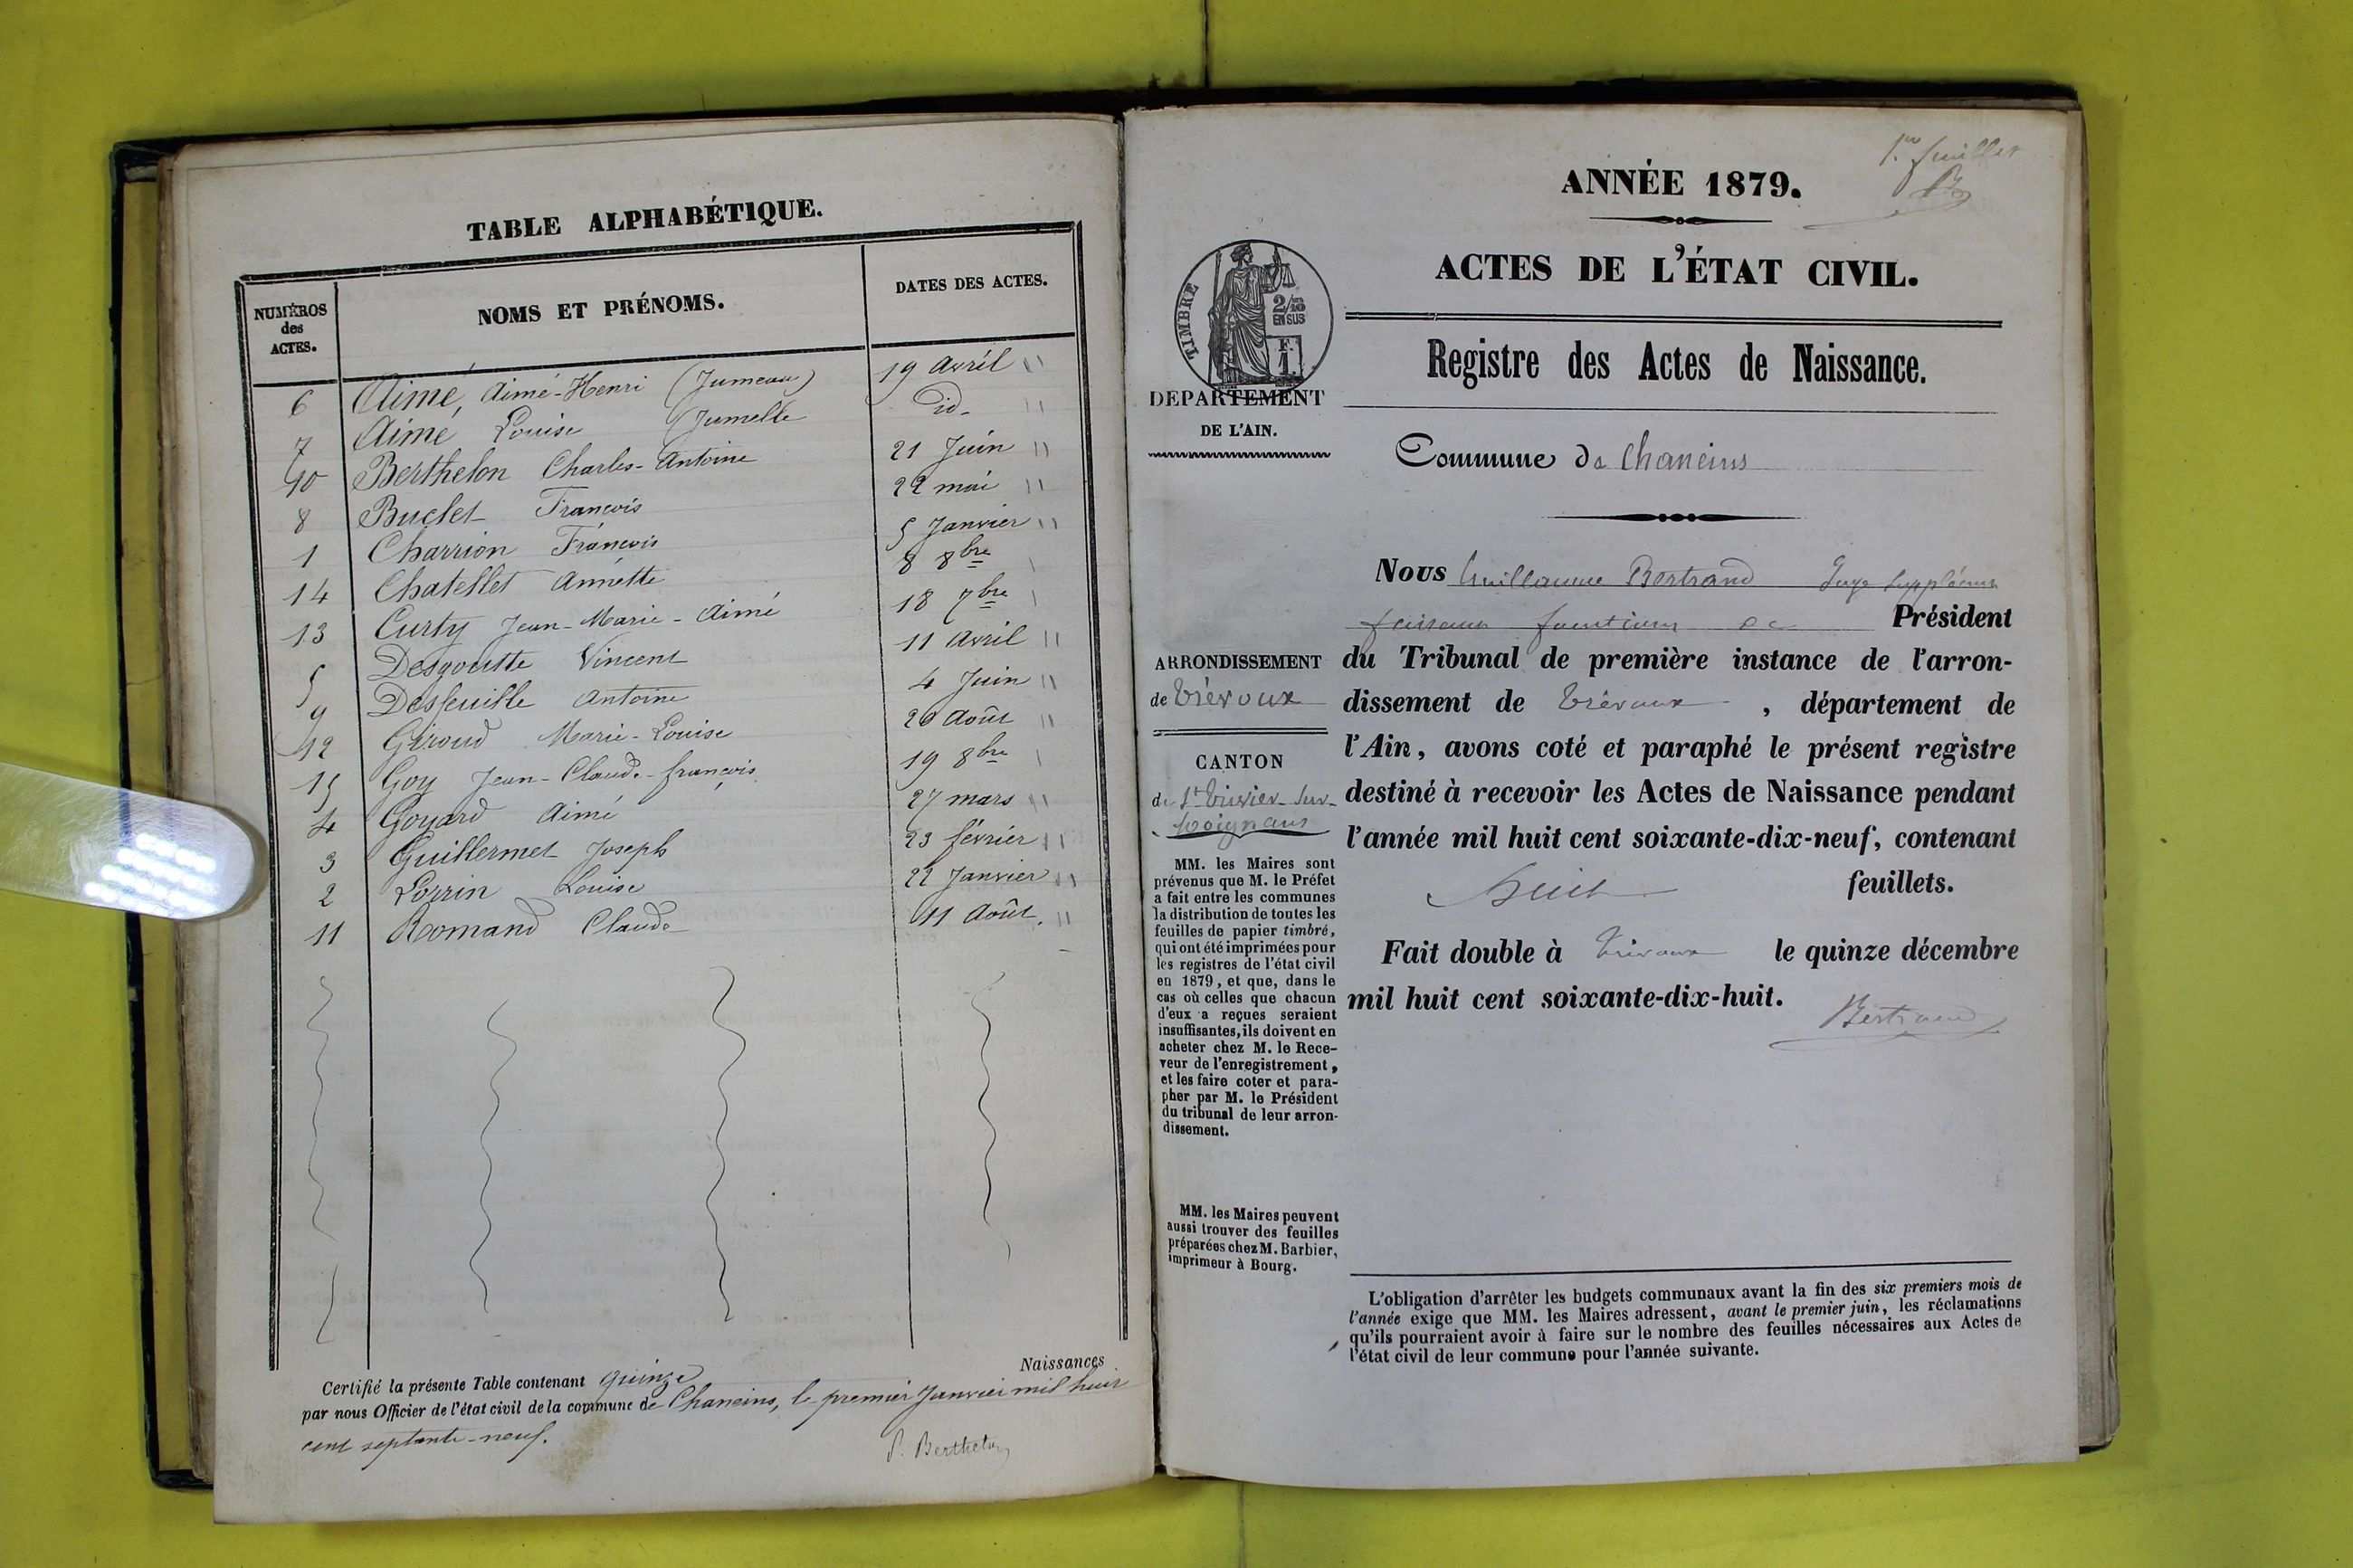 TABLE ALPHABÉTIQUE.
NUMÉROS des ACTES. NOMS ET PRÉNOMS. DATES DES ACTES.
6 Aimé, Aimé-Henri (Jumeau) 19 Avril "
7 Aimé Louise (Jumelle id- "
10 Berthelon Charles-Antoine 21 Juin "
8 Buclet François 22 mai "
1 Charrion François 5 Janvier "
14 Chatellet Annette 8 8bre
13 Curty Jean-Marie-Aimé 18 7bre
5 Desgoutte Vincent 11 Avril "
9 Desfeuille Antoine 4 Juin "
12 Giroud Marie-Louise 20 Août "
15 Goy Jean-Claude-françois 19 8bre
4 Goyard Aimé 27 mars "
3 Guillermet Joseph 23 février "
2 Lorrin Louise 22 Janvier "
11 Romand Claude 11 Août. "
Certifié la présente Table contenant quinze Naissances
par nous Officier de l'état civil de la commune de Chaneins, le premier Janvier mil huit
cent septante-neuf.
P. Berthelon
1er feuillet
ANNÉE 1879.
ACTES DE L'ÉTAT CIVIL.
TIMBRE
2/10
EN SUS
F.
1
DÉPARTEMENT
DE L'AIN.
Registre des Actes de Naissance.
Commune de Chaneins
Nous Guillaume Bertrand Juge Suppléant
faisant fonctions de Président
du Tribunal de première instance de l'arron-
dissement de Trévoux, département de
l'Ain, avons coté et paraphé le présent registre
destiné à recevoir les Actes de Naissance pendant
l'année mil huit cent soixante-dix-neuf, contenant
huit feuillets.
Fait double à Trévoux le quinze décembre
mil huit cent soixante-dix-huit.
Bertrand
ARRONDISSEMENT
de Trévoux
CANTON
de St Trivier-Sur-
Moignans
MM. les Maires sont
prévenus que M. le Préfet
a fait entre les communes
la distribution de toutes les
feuilles de papier timbré,
qui ont été imprimées pour
les registres de l'état civil
en 1879, et que, dans le
cas où celles que chacun
d'eux a reçues seraient
insuffisantes, ils doivent en
acheter chez M. le Rece-
veur de l'enregistrement,
et les faire coter et para-
pher par M. le Président
du tribunal de leur arron-
dissement.
MM. les Maires peuvent
aussi trouver des feuilles
préparées chez M. Barbier,
imprimeur à Bourg.
L'obligation d'arrêter les budgets communaux avant la fin des six premiers mois de
l'année exige que MM. les Maires adressent, avant le premier juin, les réclamations
qu'ils pourraient avoir à faire sur le nombre des feuilles nécessaires aux Actes de
l'état civil de leur commune pour l'année suivante.